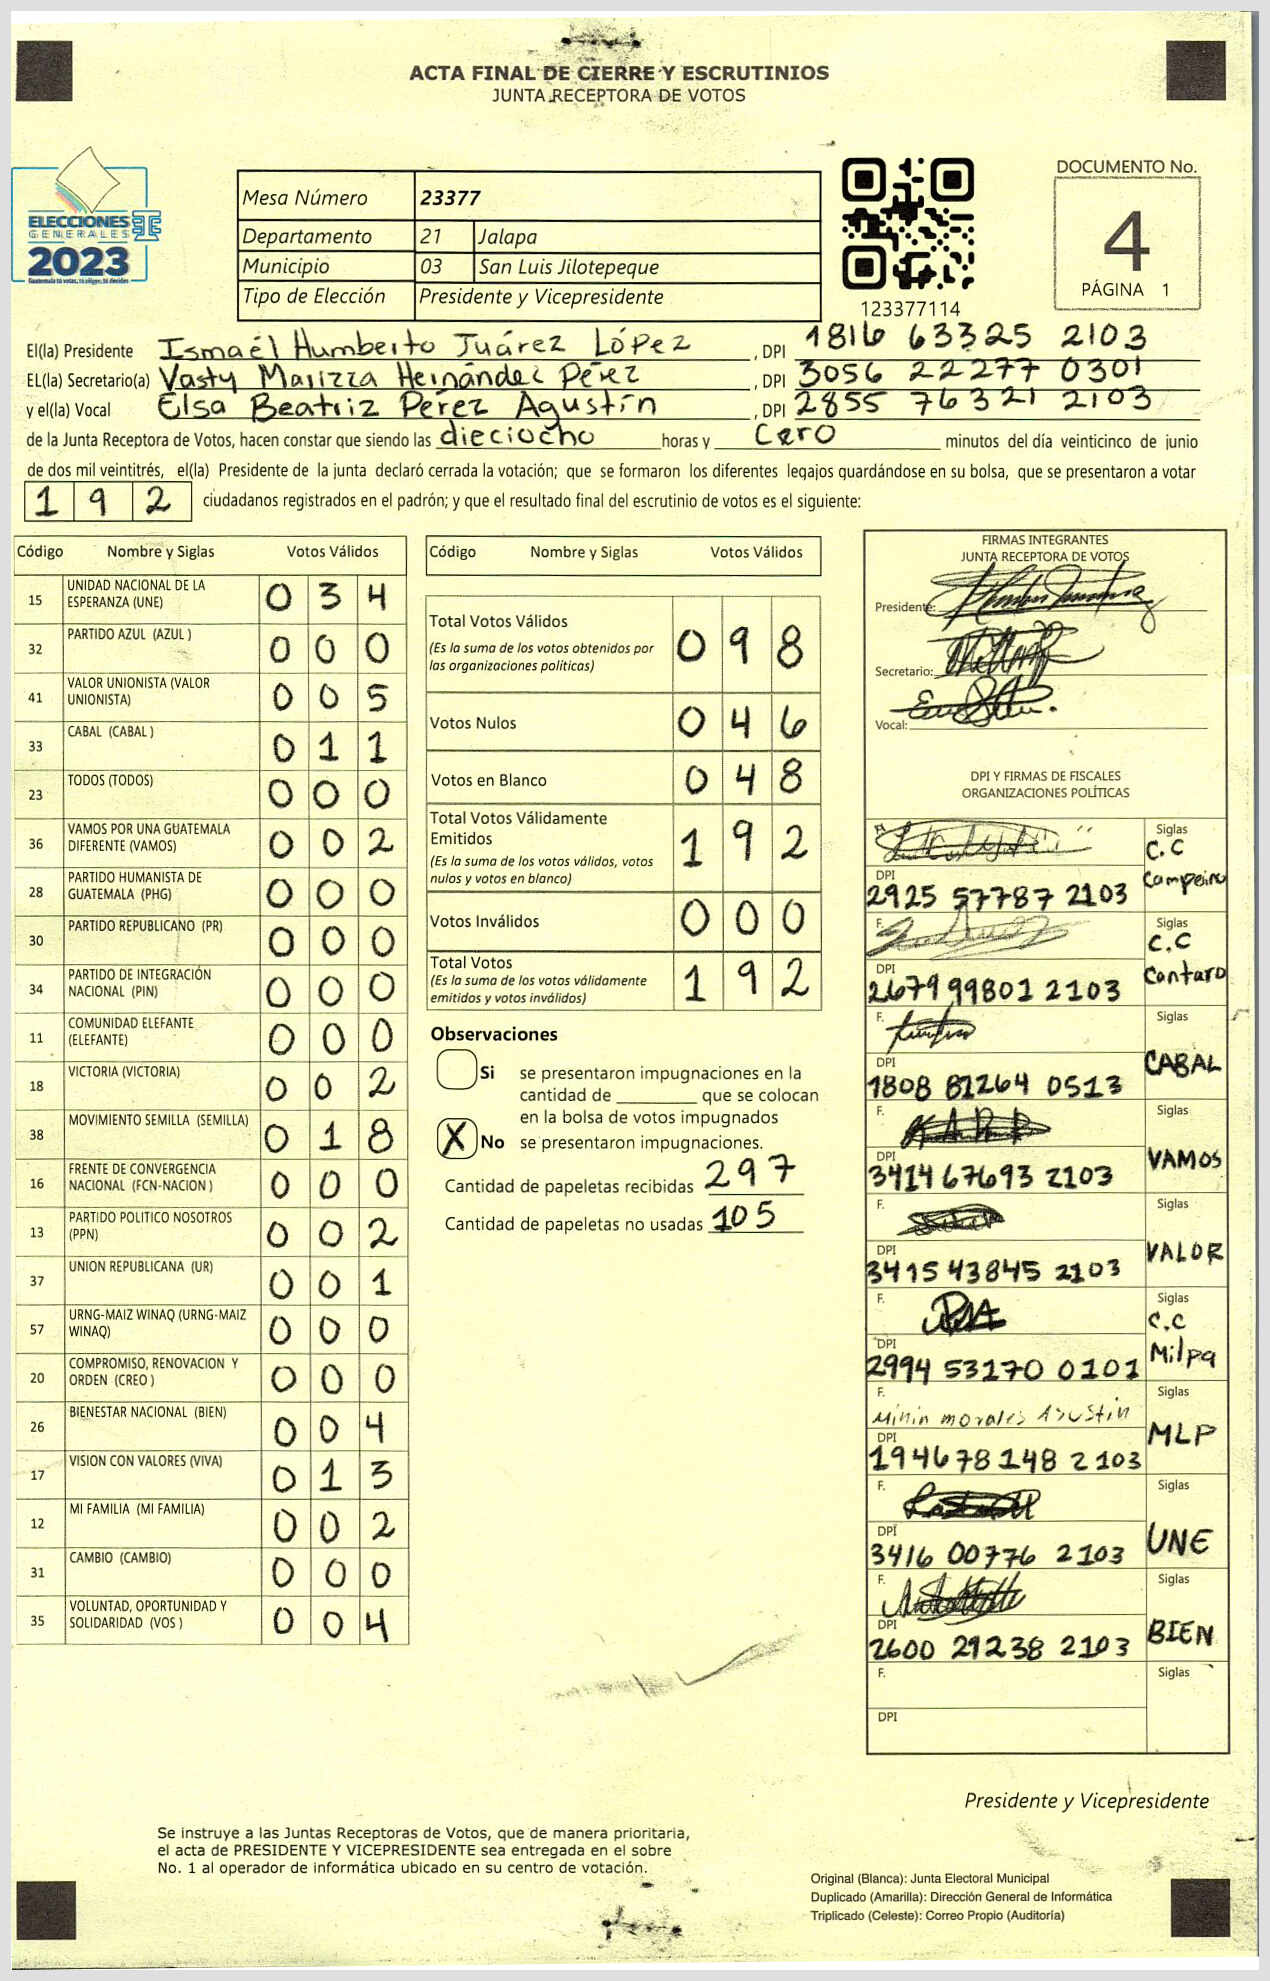 ACTA FINAL DE CIERRE Y ESCRUTINIOS
JUNTA RECEPTORA DE VOTOS
ELECCIONES
GENERALES
2023
Guatemala tú votas, tú eliges, tú decides
Mesa Número 23377
Departamento 21 Jalapa
Municipio 03 San Luis Jilotepeque
Tipo de Elección Presidente y Vicepresidente
123377114
DOCUMENTO No.
4
PÁGINA 1
El(la) Presidente Ismaél Humberto Juárez López, DPI 1816 63325 2103
EL(la) Secretario(a) Vasty Marizza Hernández Pérez, DPI 3056 22277 0301
y el(la) Vocal Elsa Beatriz Pérez Agustín, DPI 2855 76321 2103
de la Junta Receptora de Votos, hacen constar que siendo las dieciocho horas y Cero minutos del día veinticinco de junio
de dos mil veintitrés, el(la) Presidente de la junta declaró cerrada la votación; que se formaron los diferentes legajos guardándose en su bolsa, que se presentaron a votar
192 ciudadanos registrados en el padrón; y que el resultado final del escrutinio de votos es el siguiente:
Código Nombre y Siglas Votos Válidos
15 UNIDAD NACIONAL DE LA ESPERANZA (UNE) 034
32 PARTIDO AZUL (AZUL ) 000
41 VALOR UNIONISTA (VALOR UNIONISTA) 005
33 CABAL (CABAL ) 011
23 TODOS (TODOS) 000
36 VAMOS POR UNA GUATEMALA DIFERENTE (VAMOS) 002
28 PARTIDO HUMANISTA DE GUATEMALA (PHG) 000
30 PARTIDO REPUBLICANO (PR) 000
34 PARTIDO DE INTEGRACIÓN NACIONAL (PIN) 000
11 COMUNIDAD ELEFANTE (ELEFANTE) 000
18 VICTORIA (VICTORIA) 002
38 MOVIMIENTO SEMILLA (SEMILLA) 018
16 FRENTE DE CONVERGENCIA NACIONAL (FCN-NACION ) 000
13 PARTIDO POLITICO NOSOTROS (PPN) 002
37 UNION REPUBLICANA (UR) 001
57 URNG-MAIZ WINAQ (URNG-MAIZ WINAQ) 000
20 COMPROMISO, RENOVACION Y ORDEN (CREO ) 000
26 BIENESTAR NACIONAL (BIEN) 004
17 VISION CON VALORES (VIVA) 013
12 MI FAMILIA (MI FAMILIA) 002
31 CAMBIO (CAMBIO) 000
35 VOLUNTAD, OPORTUNIDAD Y SOLIDARIDAD (VOS ) 004
Código Nombre y Siglas Votos Válidos
Total Votos Válidos 098
(Es la suma de los votos obtenidos por
las organizaciones politicas)
Votos Nulos 046
Votos en Blanco 048
Total Votos Válidamente
Emitidos 192
(Es la suma de los votos válidos, votos
nulos y votos en blanco)
Votos Inválidos 000
Total Votos 192
(Es la suma de los votos válidamente
emitidos y votos inválidos)
Observaciones
Si se presentaron impugnaciones en la
cantidad de ________ que se colocan
en la bolsa de votos impugnados
X No se presentaron impugnaciones.
Cantidad de papeletas recibidas 297
Cantidad de papeletas no usadas 105
FIRMAS INTEGRANTES
JUNTA RECEPTORA DE VOTOS
Presidente:
Secretario:
Vocal:
DPI Y FIRMAS DE FISCALES
ORGANIZACIONES POLÍTICAS
F. Siglas
C.C
Campeiro
DPI
2925 57787 2103
F. Siglas
C.C
Cantaro
DPI
2679 99801 2103
F. Siglas
CABAL
DPI
1808 81264 0513
F. Siglas
VAMOS
DPI
3414 67693 2103
F. Siglas
VALOR
DPI
3415 43845 2103
F. Siglas
C.C
Milpa
DPI
2994 53170 0101
F. Siglas
Minin morales Agustin
MLP
DPI
1946 78148 2103
F. Siglas
UNE
DPI
3416 00776 2103
F. Siglas
BIEN
DPI
2600 29238 2103
F. Siglas
DPI
Presidente y Vicepresidente
Se instruye a las Juntas Receptoras de Votos, que de manera prioritaria,
el acta de PRESIDENTE Y VICEPRESIDENTE sea entregada en el sobre
No. 1 al operador de informática ubicado en su centro de votación.
Original (Blanca): Junta Electoral Municipal
Duplicado (Amarilla): Dirección General de Informática
Triplicado (Celeste): Correo Propio (Auditoría)